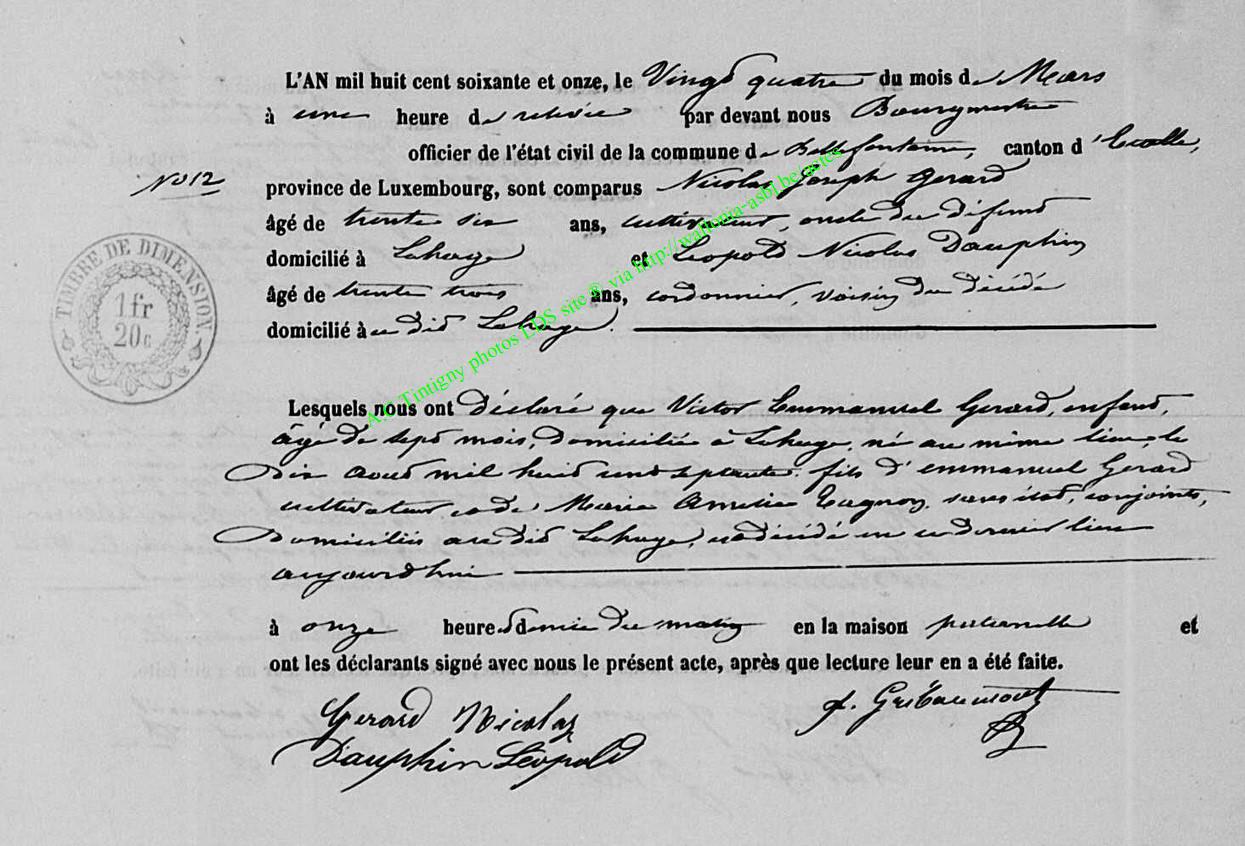 L'AN mil huit cent soixante et onze, le Vingt quatre du mois de Mars
à une heure de relevée par devant nous Bourgmestre
officier de l'état civil de la commune de Bellefontaine, canton d'Etalle,
N° 12
province de Luxembourg, sont comparus Nicolas Joseph Gerard
âgé de trente six ans, cultivateur, oncle du défunt
domicilié à Lahage et Léopold Nicolas Dauphin
âgé de trente trois ans, cordonnier, voisin du décédé
domicilié à u dit Lahage.
TIMBRE DE DIMENSION
1 fr
20 c
Act Tintigny photos LDS site ® via http://wallonia-asbl.be/antes
Lesquels nous ont déclaré que Victor Emmanuel Gerard, enfant,
âgé de sept mois, domicilié à Lahage, né au même lieu, le
Dix aout mil huit cent septante, fils d'emmanuel Gérard
cultivateur et de Marie Amelie sans état, conjoints,
Domiciliés au dit Lahage, est décédé en ce dernier lieu
aujourd'hui
à onze heures demie du matin en la maison paternelle et
ont les déclarants signé avec nous le présent acte, après que lecture leur en a été faite.
Gerard Nicolas
Dauphin Léopold
Gribaumont